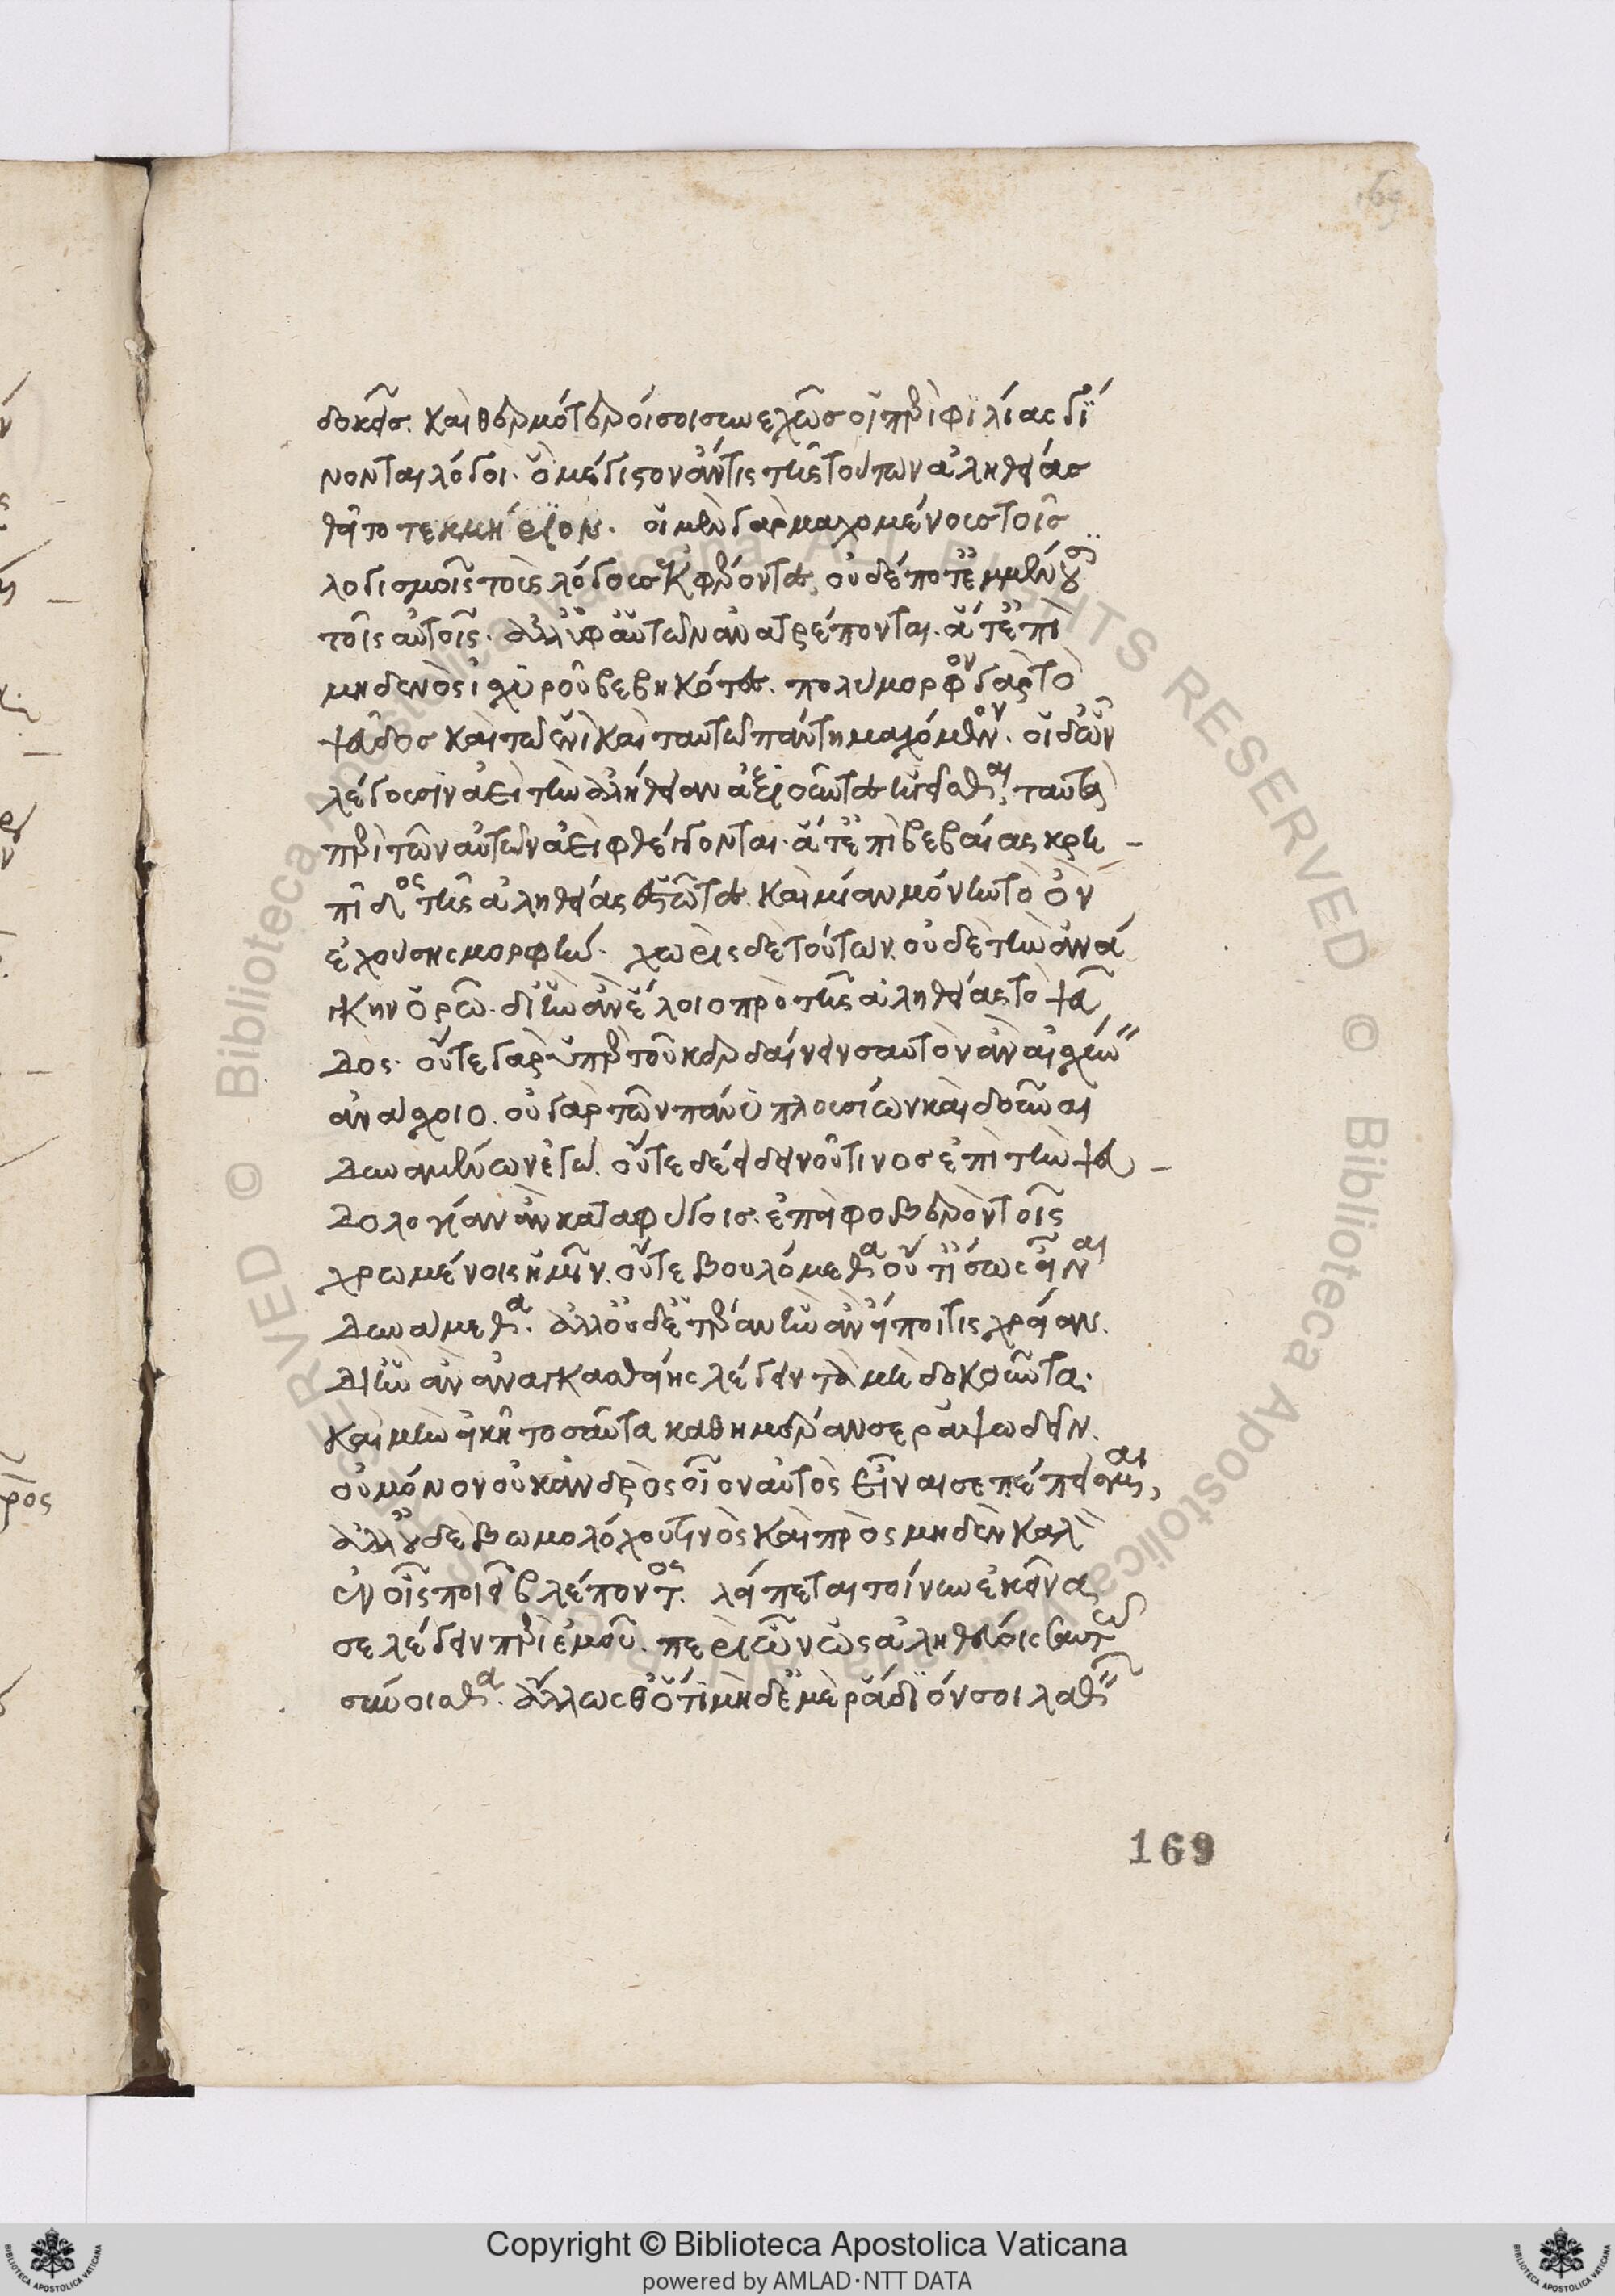 169
δοκεῖς. καὶ θερμότεροί σοι συχνῶς οἱ περὶ φιλίας γί
νονται λόγοι. ὃ μέγιστον ἄν τις τῆς τούτων ἀληθείας
θεῖτο τεκμήριον. οἱ μὲν γὰρ μαχομένους τοῖς
λογισμοῖς τοὺς λόγους ἐκφέροντες, οὐδέποτ' ἐμμένουσι
τοῖς αὐτοῖς. ἀλλ' ὑφ' αὑτῶν ἀνατρέπονται. ἅτ' ἐπὶ
μηδενὸς ἰσχυροῦ βεβηκότες. πολύμορφον γὰρ τὸ
ψεῦδος καὶ τῷ ἑνὶ καὶ ταυτῷ πάντη μαχόμενον. οἱ δ' ὧν
λέγουσιν ἀεὶ τὴν ἀλήθειαν ἀξιοῦντες ἡγεῖσθαι, ταυτὰ
περὶ τῶν αὐτῶν ἀεὶ φθέγγονται. ἅτ' ἐπὶ βεβαίας κρη
πῖδος τῆς ἀληθείας ἑστῶτες. καὶ μίαν μόνην τὸ ὂν
ἐχούσης μορφήν. χωρὶς δὲ τούτων, οὐδὲ τὴν ἀνά
γκην ὁρῶ. δι' ἣν ἂν ἕλοιο πρὸ τῆς ἀληθείας τὸ ψεῦ
δος. οὔτε γὰρ ὑπὲρ τοῦ κερδαίνειν σαυτὸν ἂν αἰσχύνην
ἀνάσχοιο. οὐ γὰρ τῶν πάνυ πλουσίων καὶ δοῦναι
δυναμένων ἐγώ. οὔτε δέει δεινοῦ τινος ἐπὶ τὴν ψευ
δολογίαν ἂν καταφύγοις. ἐπεὶ φοβερὸν τοῖς
χρωμένοις ἡμῖν. οὔτε βουλόμεθα οὔτ' ἴσως εἶναι
δυνάμεθα. ἀλλ' οὐδ' ἑτέραν ἣν ἂν εἴποι τις χρείαν.
δι' ἣν ἂν ἀναγκασθείης λέγειν τὰ μὴ δοκοῦντα.
καὶ μὴν εἰκῆ τοσαῦτα καθ' ἡμέραν σε ῥαψωδεῖν.
οὐ μόνον οὐκ ἀνδρὸς οἷον αὐτὸς εἶναί σε πέπεισμαι,
ἀλλ' οὐδὲ βωμολόχου τινὸς καὶ πρὸς μηδὲν καλὸν
ἐν οἷς ποιεῖ βλέποντος. λείπεται τοίνυν ἐκεῖνα
σε λέγειν περὶ ἐμοῦ. περὶ ὧν ὡς ἀληθέσι σαυτῷ
σύνοισθα. ἄλλως θ' ὅτι μηδ' ἐμὲ ῥᾴδιόν σοι λαθεῖν
169
Copyright © Biblioteca Apostolica Vaticana
powered by AMLAD·NTT DATA